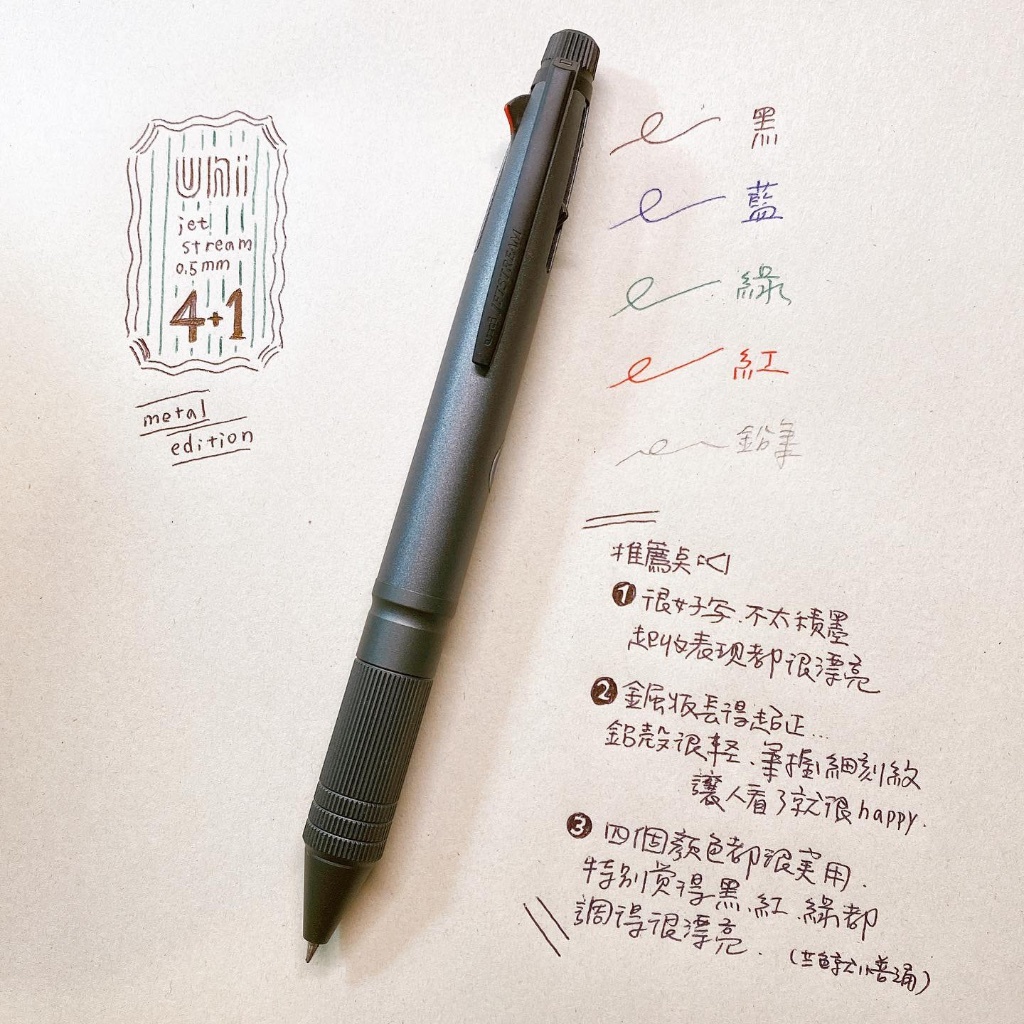 uni
jet
stream
0.5mm
4+1
metal
edition
uni JETSTREAM
黑
藍
綠
紅
鉛筆
推薦点
1 很好写.不太積墨
起收表現都很漂亮
2 金屬版長得超正...
鋁殼很輕、筆握細刻紋
讓人看了就很happy.
3 四個顏色都很実用.
特別覚得黑、紅、綠都
調得很漂亮.
(藍就很普通)